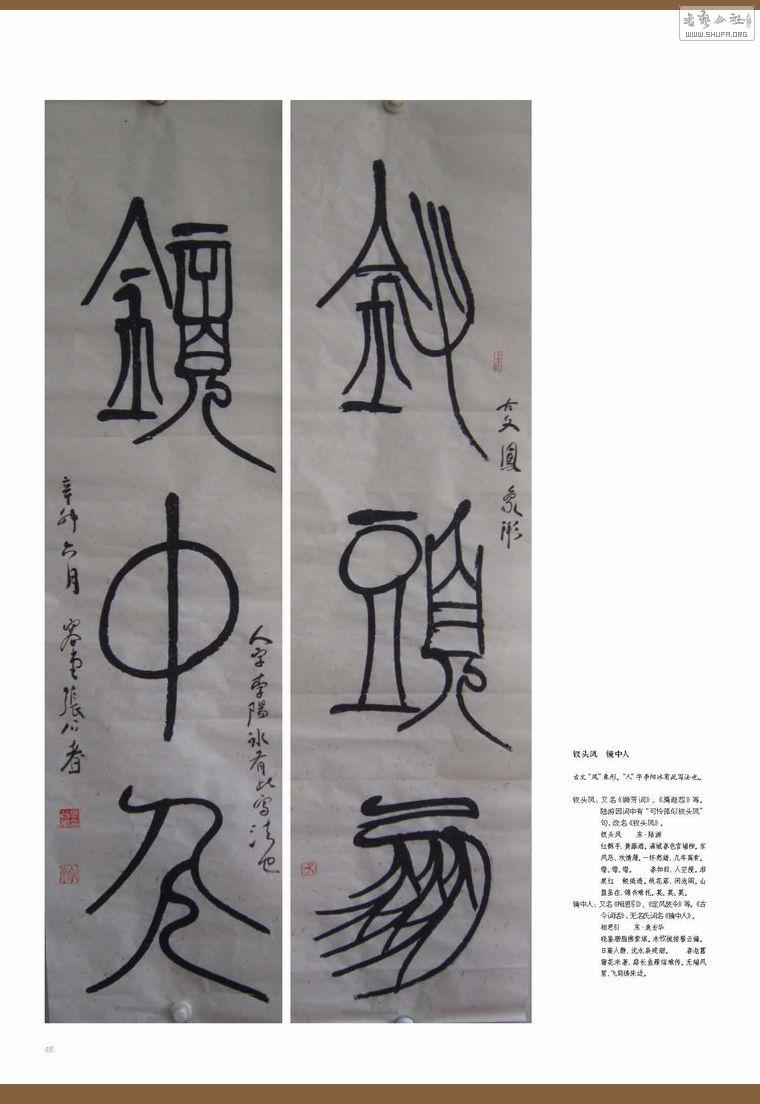 書藝公社
WWW.SHUFA.ORG
釵頭鳳
古文鳳象形
鏡中人
人字李陽冰有此寫法也
辛卯六月 容堂張公者
钗头凤 镜中人
古文“凤”象形，“人”字李阳冰有此写法也。
钗头凤：又名《撷芳词》、《摘红英》等。
陆游因词中有“可怜孤似钗头凤”
句，改名《钗头凤》。
钗头凤 宋·陆游
红酥手，黄藤酒，满城春色宫墙柳。东
风恶，欢情薄。一怀愁绪，几年离索。
错、错、错。 春如旧，人空瘦，泪
痕红 鲛绡透。桃花落，闲池阁。山
盟虽在，锦书难托。莫、莫、莫。
镜中人：又名《相思引》、《定风波令》等。《古
今词话》，无名氏词名《镜中人》。
相思引 宋·袁去华
晓鉴胭脂拂紫绵。未忺梳掠鬓云偏。
日高人静，沈水袅残烟。 春老菖
蒲花未著，路长鱼雁信难传。无端风
絮，飞到绣床边。
48